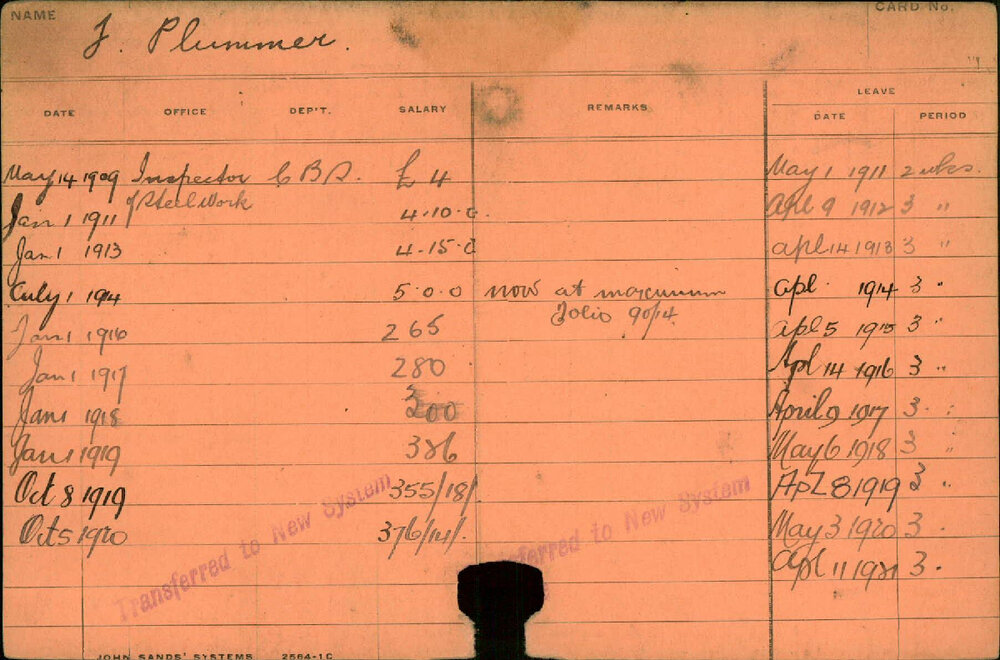 NAME
CARD No.
J. Plummer.
DATE OFFICE DEP'T. SALARY REMARKS LEAVE
DATE PERIOD
May 14 1909 Inspector C B S. £ 4 May 1 1911 2 wks.
of Steel Work
Jan 1 1911 4.10.0. Apl 9 1912 3 "
Jan 1 1913 4.15.0 apl 14 1913 3 "
July 1 194 5.0.0 now at maximum apl. 1914 3 "
Folio 90/14
Jan 1 1916 265 apl 5 1915 3 "
Jan 1 1917 280 Apl 14 1916 3 "
Jan 1 1918 300 April 9 1917 3. "
Jan 1 1919 386 May 6 1918 3 "
Oct 8 1919 355/18/ Apl 8 1919 3 "
Oct 5 1920 376/14/. May 3 1920 3.
Apl 11 1921 3.
Transferred to New System
Transferred to New System
JOHN SANDS' SYSTEMS 2564-1C